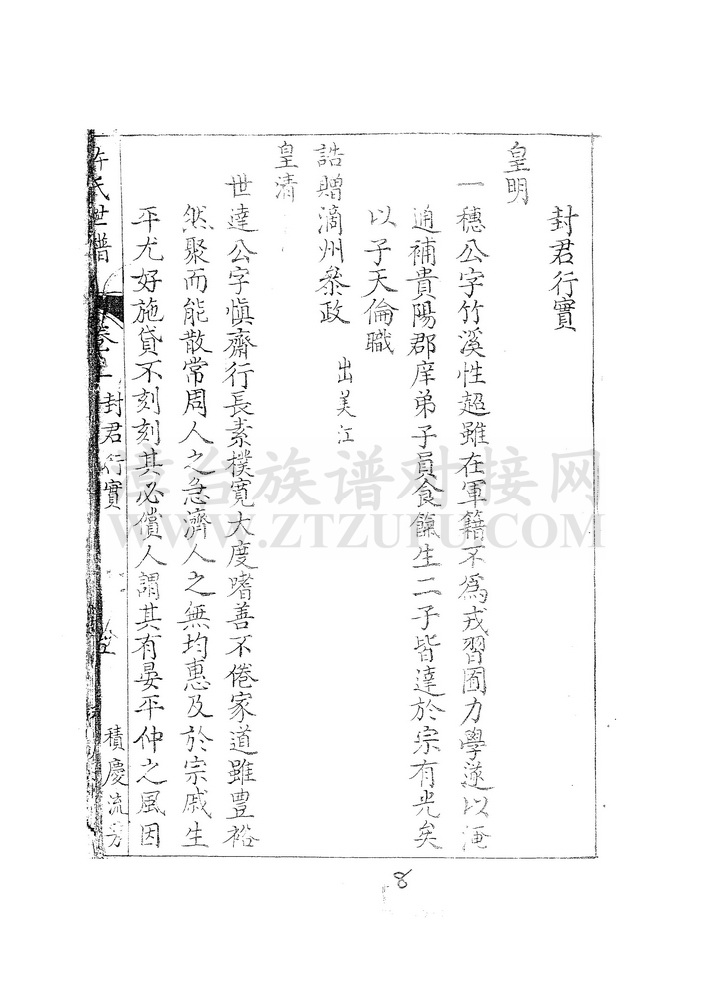 封君行實
皇明
一穗公字竹溪性超雖在軍籍不爲戎習囿力學遂以淹
通補貴陽郡庠弟子員食餼生二子皆達於宗有光矣
以子天倫職
誥贈滴州叅政 出美江
皇清
世達公字愼齋行長素樸寬大度嗜善不倦家道雖豊裕
然聚而能散常周人之急濟人之無均惠及於宗戚生
平尤好施貸不刻刻其必償人謂其有晏平仲之風因
許氏世譜 封君行實 積慶流芳
8
京台族谱对接网
WWW.ZTZUPU.COM